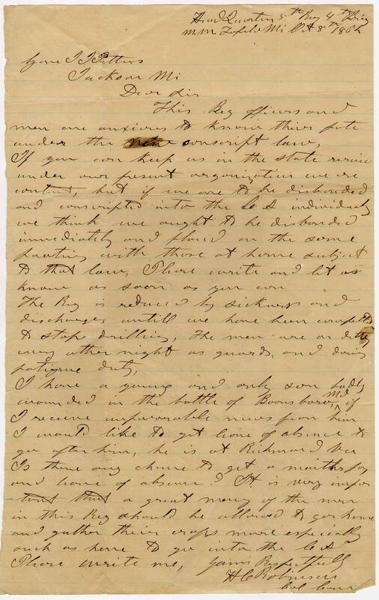 Head Quarters 5th Reg 4th Brig
M M Tupelo Mi Oct 8th 1862
Gov J J Pettus
Jackson Mi
Dear Sir
This Reg officers and
men are anxious to know their fate
under the conscript law,
If you can keep us in the state service
under our present organization we are
content, but if we are to be disbanded
and conscripted into the C S individualy
we think we ought to be disbanded
immediately and placed on the same
footing with those at home subject
to that law, Please write and let us
know as soon as you can
The Reg is reduced by sickness and
discharges untill we have been compelled
to stop drilling, The men are on duty
every other night as guards, and doing
fatigue duty,
I have a young and only son badly
wounded in the battle of Boonsboro Md, if
I receive unfavorable news from him
I would like to get leave of absence to
go after him, he is at Richmond Va
Is there any chance to get a months pay
and leave of absence? It is very impor
tant that a great many of the men
in this Reg should be allowed to go home
and gather their crops more especially
such as have to go into the C S
Please write me, yours Respectfully
H C Robinson
Col Comd